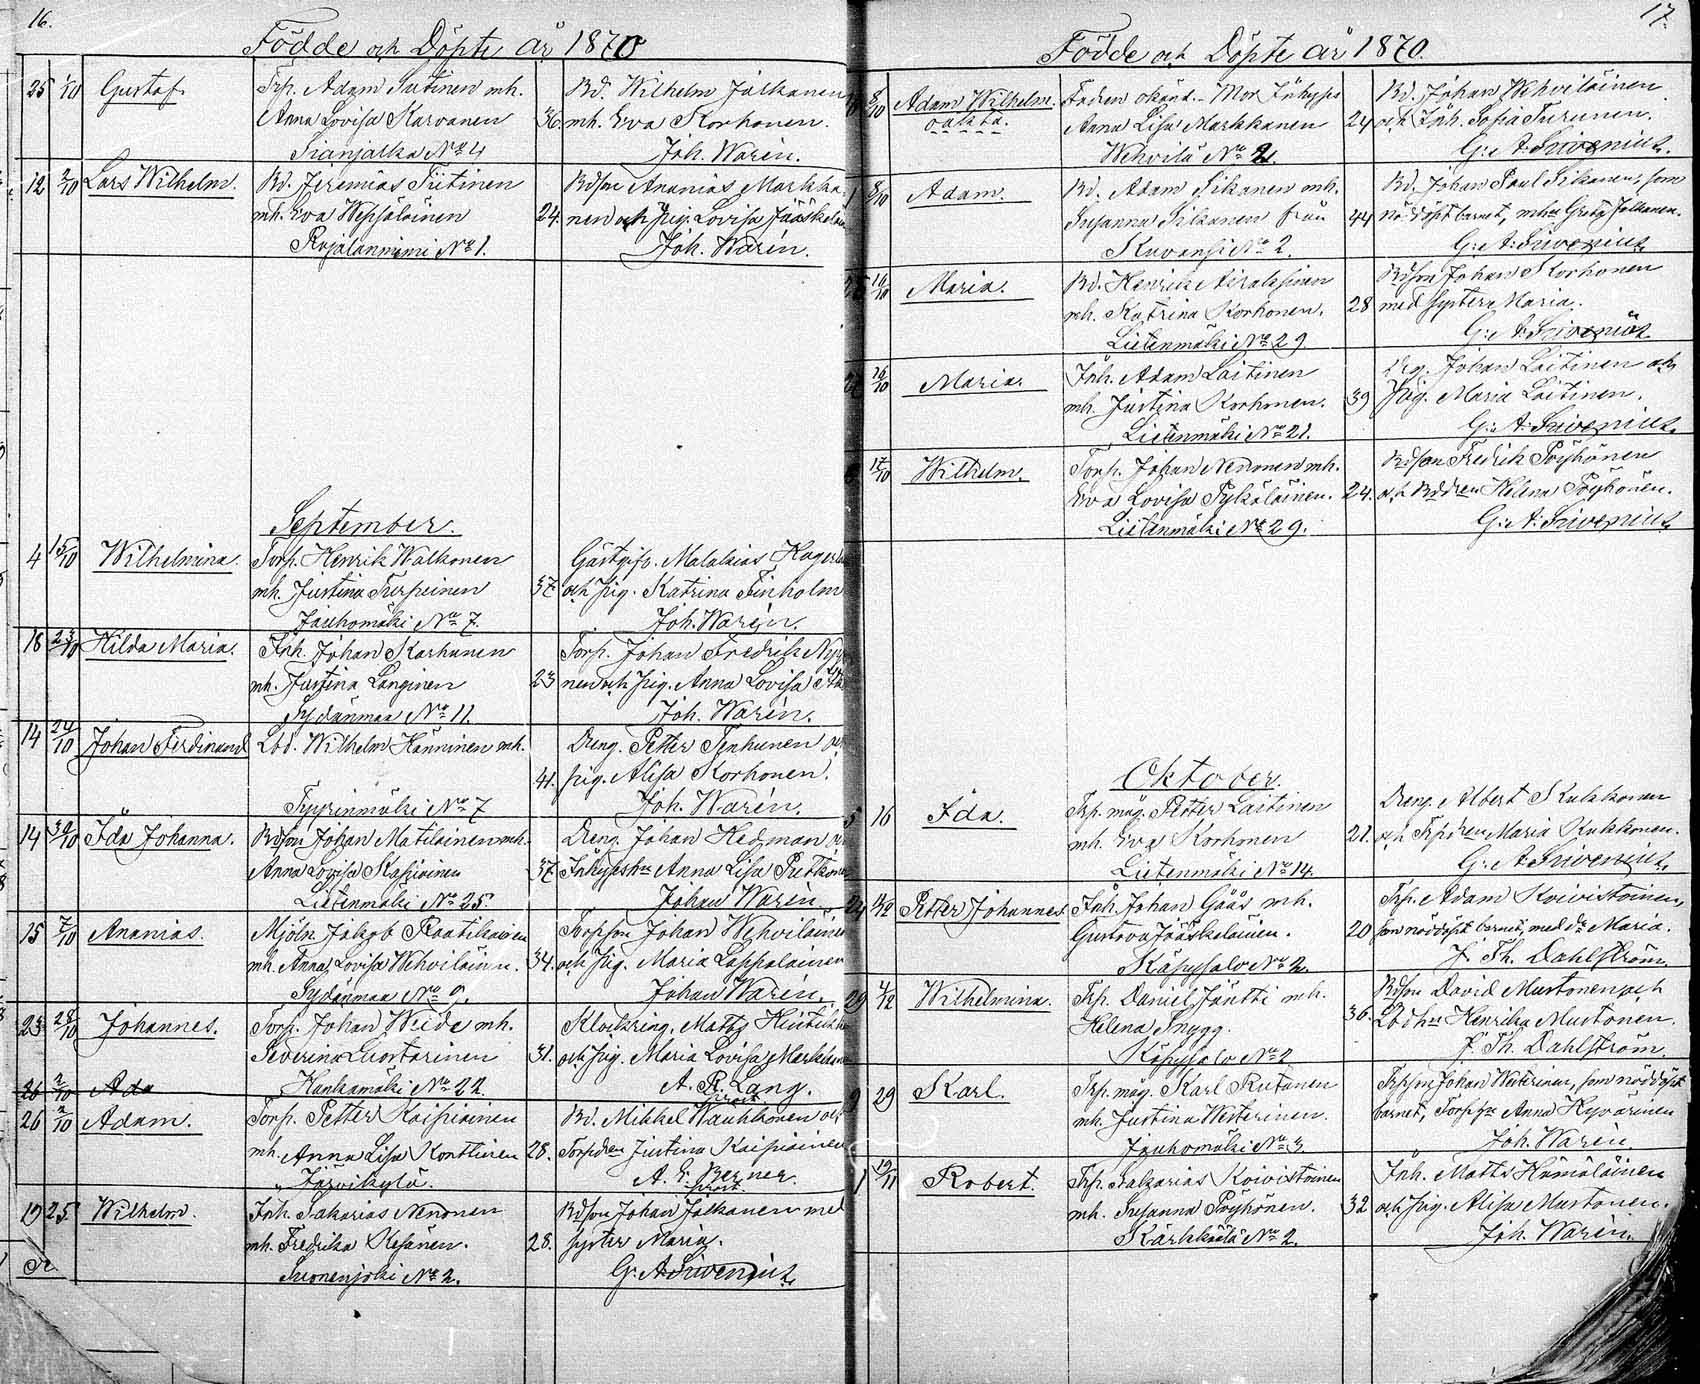 16.
Födde och Döpte år 1870
25 1/10 Gustaf. Trp. Adam Tiitinen mh.
Anna Lovisa Karvanen
Sianjalka No 4
36. Bd. Wilhelm Jalkanen
mh. Eva Korhonen.
Joh. Warén.
12 2/10 Lars Wilhelm. Bd. Jeremias Tiitinen
mh. Eva Wepsäläinen
Rajalanniemi No 1.
24. Bdson Ananias Markka-
nen och pig. Lovisa Jääskeläi
Joh. Warén.
September.
4 15/10 Wilhelmina. Torp. Henrik Walkonen
mh. Justina Turpeinen
Jauhomäki No 7.
37 Gästgifv. Malakias Hager
och pig. Katrina Finholm
Joh. Warén.
18 23/10 Hilda Maria. Inh. Johan Karhunen
mh. Justina Langinen
Sydänmaa No 11.
23 Torp. Johan Fredrik
nen och pig. Anna Lovisa
Joh. Warén.
14 24/10 Johan Ferdinand Lbd. Wilhelm Hänninen mh.
Syyrinmäki No 7
41. Dreng. Petter Tenhunen och
pig. Alisa Korhonen.
Joh. Warén.
14 30/10 Ida Johanna. Bdson Johan Matilainen mh.
Anna Lovisa Kaipainen
Lietenmäki No 25.
37 Dreng Johan Hedman
Inhyseshu Anna Lisa
Johan Warén
15 7/10 Ananias. Mjöln. Jakob Raatikainen
mh. Anna Lovisa Wehviläinen.
Sydänmaa No 9.
34. Torpson Johan Wehviläinen
och pig. Maria Lappalainen
Johan Warén.
23 28/10 Johannes. Torp. Johan Weide mh.
Severina Luostarinen
Hankamäki No 22.
31. Klockring. Matts
och pig. Maria Lovisa
A. R. Lang.
prost.
26 2/10 Ada
26 2/10 Adam. Torp. Petter Kaipiainen
mh. Anna Lisa Konttinen
Järvikylä.
28. Bd. Mikkel Wauhkonen och
Torpdren Justina Kaipiainen
A. E. Berner.
prost.
19 25 Wilhelm. Inh. Sakarias Nenonen
mh. Fredrika Kesänen.
Suonenjoki No 2.
28. Bdson Johan Jalkanen med
syster Maria.
G. A. Sivenius.
17.
Födde och Döpte år 1870.
8/10 Adam Wilhelm. oäkta. Fadren okänd. - Mor Inhyses
Anna Lisa Markkanen
Wehvilä No 2.
24 Bd. Johan Wehviläinen
och Inh. Sofia Turunen.
G: A: Sivenius.
8/10 Adam. Bd. Adam Sikanen mh.
Susanna Sikanen från
Kuvansi No 2.
44 Bd. Johan Paul Sikanen, som
nöddöpt barnet, mhu Greta Jalkanen.
G: A: Sivenius
16/10 Maria. Bd. Henrik Airaksinen
mh. Katrina Korhonen.
Lietenmäki No 29.
28 Bdson Johan Korhonen
med syster Maria.
G: A: Sivenius
16/10 Maria. Inh. Adam Laitinen
mh. Justina Korhonen.
Lietenmäki No 21.
39 Drg. Johan Laitinen och
Pig. Maria Laitinen.
G: A: Sivenius.
17/10 Wilhelm. Torp. Johan Nenonen mh.
Eva Lovisa Pykäläinen.
Lietenmäki No 29.
24. Bdson Fredrik Pöyhönen
och Bddren Helena Pöyhönen.
G: A: Sivenius
Oktober.
5 16 Ida. Trp. måg. Petter Laitinen
mh. Eva Korhonen
Lietenmäki No 14.
21. Dreng Albert Kukkonen
och Trpdren Maria Kukkonen.
G: A: Sivenius,
24 Petter Johannes. Inh. Johan Gåås mh.
Gustava Jääskeläinen.
Käpysalo No 2
20 Trp. Adam Koivistoinen,
som nöddöpt barnet, med dr Maria.
J. Th. Dahlström
29 4/12 Wilhelmina. Trp. Daniel Jäntti mh.
Helena Snygg.
Käpysalo No 2
36. Bdson David Mustonen och
Lbdhu Henrika Mustonen.
J. Th. Dahlström.
9 29 Karl. Trp. måg. Karl Rutanen
mh. Justina Westerinen.
Jauhomäki No 3.
Trpson Johan Westerinen, som nöddöpt
barnet, Torpgn Anna Hyvärinen
Joh. Warén
1 19/11 Robert. Trp. Sakarias Koivistoinen
mh. Susanna Pöyhönen.
Kärkkäälä No 2.
32 Inh. Matts Hämäläinen
och pig. Alisa Mustonen.
Joh. Warén.